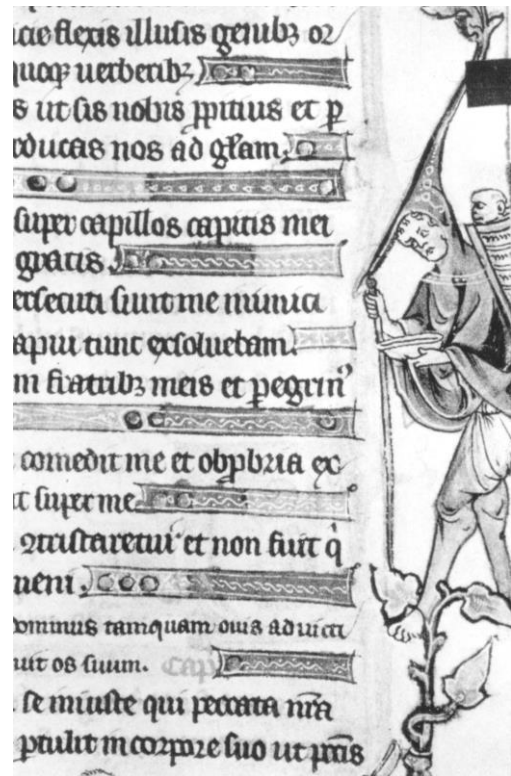 cie flexis illusis genibꝫ oz
quoqꝫ uerberibꝫ
s ut sis nobis ꝓpitius et p
educas nos ad gła̅m.
super capillos capitis mei
gratis.
ersecuti sunt me inimici
apui tunc exsoluebam.
m fratribꝫ meis et pegrin᾽
comedit me et obꝓbria ex
t super me
ꝯtristaretur et non fuit q̇
ueni.
ominus tamquam ouis ad uicti
uit os suum.
se iniuste qui peccata nr̅a
ptulit in corpore suo ut pccis